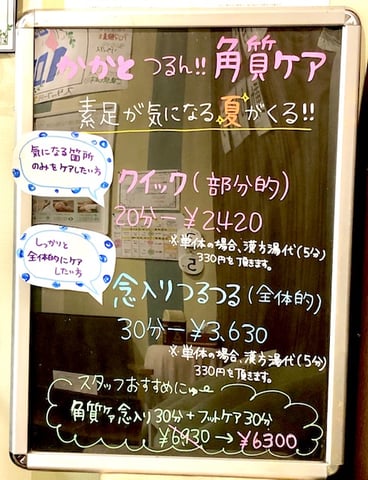 かかと つるん!! 角質ケア
素足が気になる夏がくる!!
気になる箇所
のみをケアしたい方
クイック(部分的)
20分ー¥2,420
※単体の場合、漢方湯代(5分)
330円を頂きます。
しっかりと
全体的にケア
したい方
念入りつるつる(全体的)
30分ー¥3,630
※単体の場合、漢方湯代(5分)
330円を頂きます。
スタッフおすすめにゅー
角質ケア念入り30分+フットケア30分
¥6930→¥6300